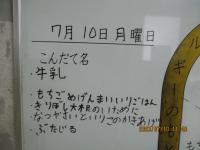 7月10日月曜日
こんだて名
・牛乳
・もちごめげんまいいりごはん
・きりぼし大根のいために
・なつやさいといりこのかきあげ
・ぶたじる
ルギーの